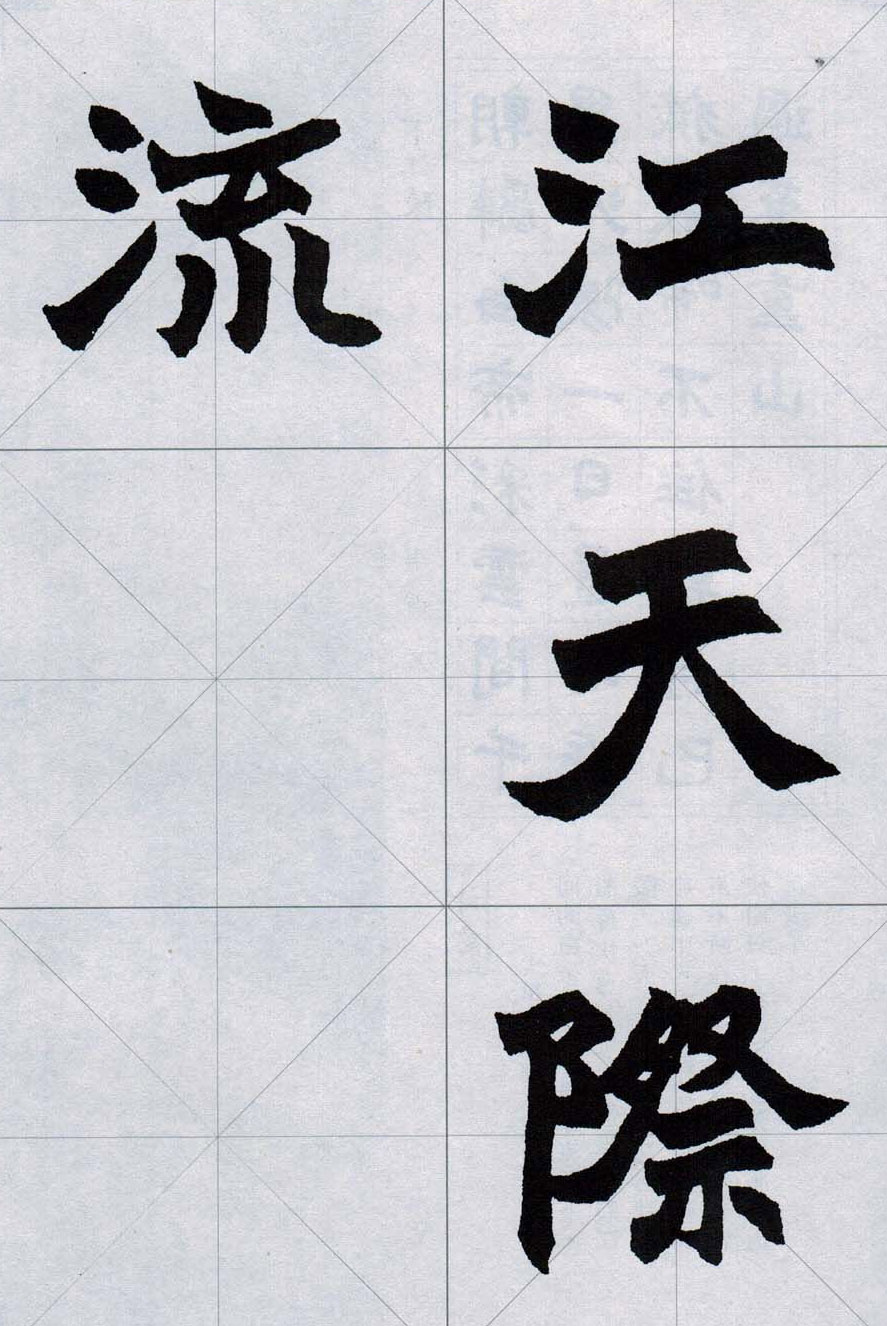 江天際
流